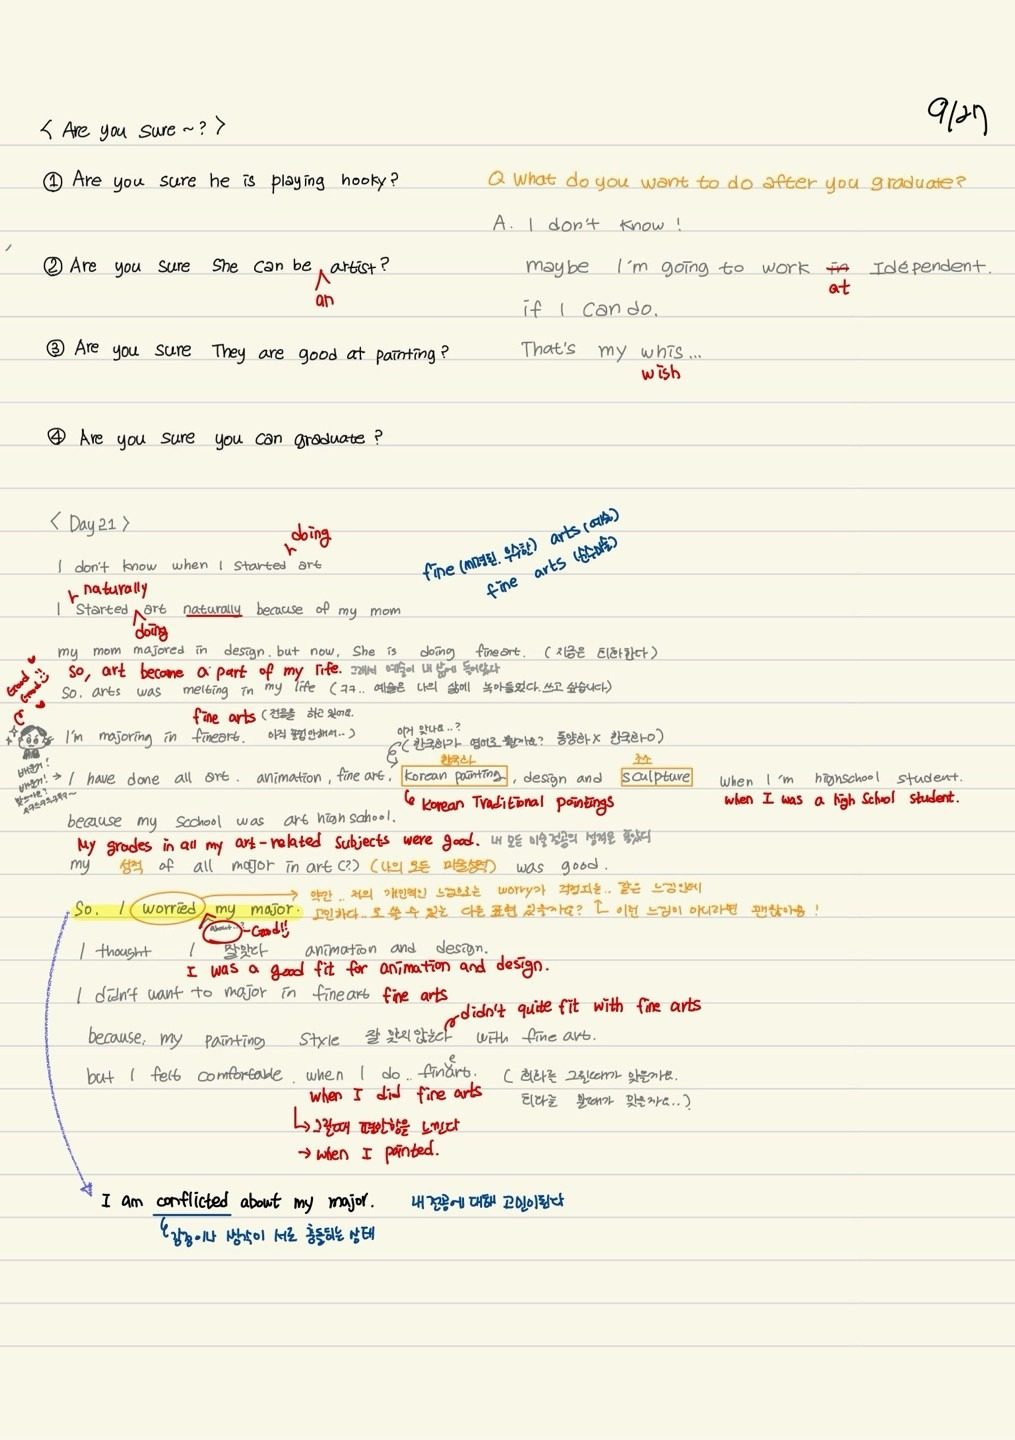 9/27
< Are you sure ~? >
① Are you sure he is playing hooky?
② Are you sure she can be artist?
an
③ Are you sure They are good at painting?
④ Are you sure you can graduate?
Q What do you want to do after you graduate?
A. I don't know!
maybe I'm going to work in Idependent.
at
if I can do.
That's my whis...
wish
< Day 21 >
doing
I don't know when I started art
fine (세련된, 우수한) arts (예술)
fine arts (순수미술)
naturally
I started art naturally because of my mom
doing
my mom majored in design. but now, She is doing fineart. (지금은 한다)
So, art become a part of my life. 그래서 예술이 내 삶에
Good
Good!!
So. arts was melting in my life (ㅋㅋ.. 예술은 나의 삶에 녹아들었다. 쓰고 싶습니다)
fine arts (전공을 하고 있어요.
I'm majoring in fineart. 아직 졸업안해서..)
이거 맞나요..?
(한국화가 영어로 뭘까요? 동양화 X 한국화 O)
한국화
조소
I have done all art. animation, fine art, Korean painting, design and sculpture when I'm highschool student.
Korean Traditional paintings
when I was a high School student.
because my scchool was art high school.
My grades in all my art-related subjects were good. 내 모든 미술전공의 성적은 좋았다
my 성적 of all major in art (?) (나의 모든 미술성적) was good.
So. I worried my major.
about..?
Good!!
약간.. 저의 개인적인 느낌으로는 worry가 걱정되는.. 같은 느낌인데
고민하다..로 쓸 수 있는 다른 표현 있을까요? 이런 느낌이 아니라면 괜찮아용!
I thought I 잘맞다 animation and design.
I was a good fit for animation and design.
I didn't want to major in fineart fine arts
didn't quite fit with fine arts
because, my painting style 잘 맞지 않는다 with fine art.
but I felt comfortable. when I do.. finart.
e
(회화는 그릴때가 맞은가요.
할때가 맞은가요..?)
when I did fine arts
그릴때 편안함을 느낀다
→ when I painted.
I am conflicted about my major. 내 전공에 대해 고민이된다
감정이나 생각이 서로 충돌되는 상태